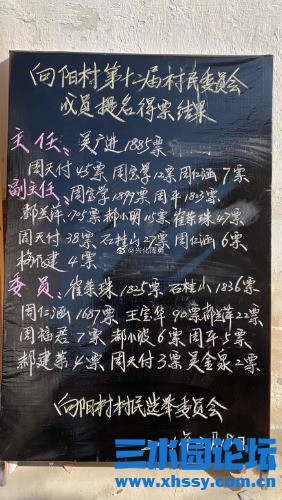 向阳村第十二届村民委员会
成员提名得票结果
主任、吴广进1885票
周天付45票 周宝学12票 周仁涵7票
副主任、周宝学1899票 周平1813票
郝兰萍175票 郝小明15票 崔荣珠47票
周天付38票 石桂山27票 周仁涵6票
建4票
委员、崔荣珠1825票 石桂山1836票
周仁涵1687票 王宝华90票 郝兰萍22票
周福君7票 郝小波6票 周平5票
郝建荣4票 周天付3票 吴金泉2票
向阳村村民选举委员会
@兴化传奇
三水园论坛
www.xhssy.com.cn